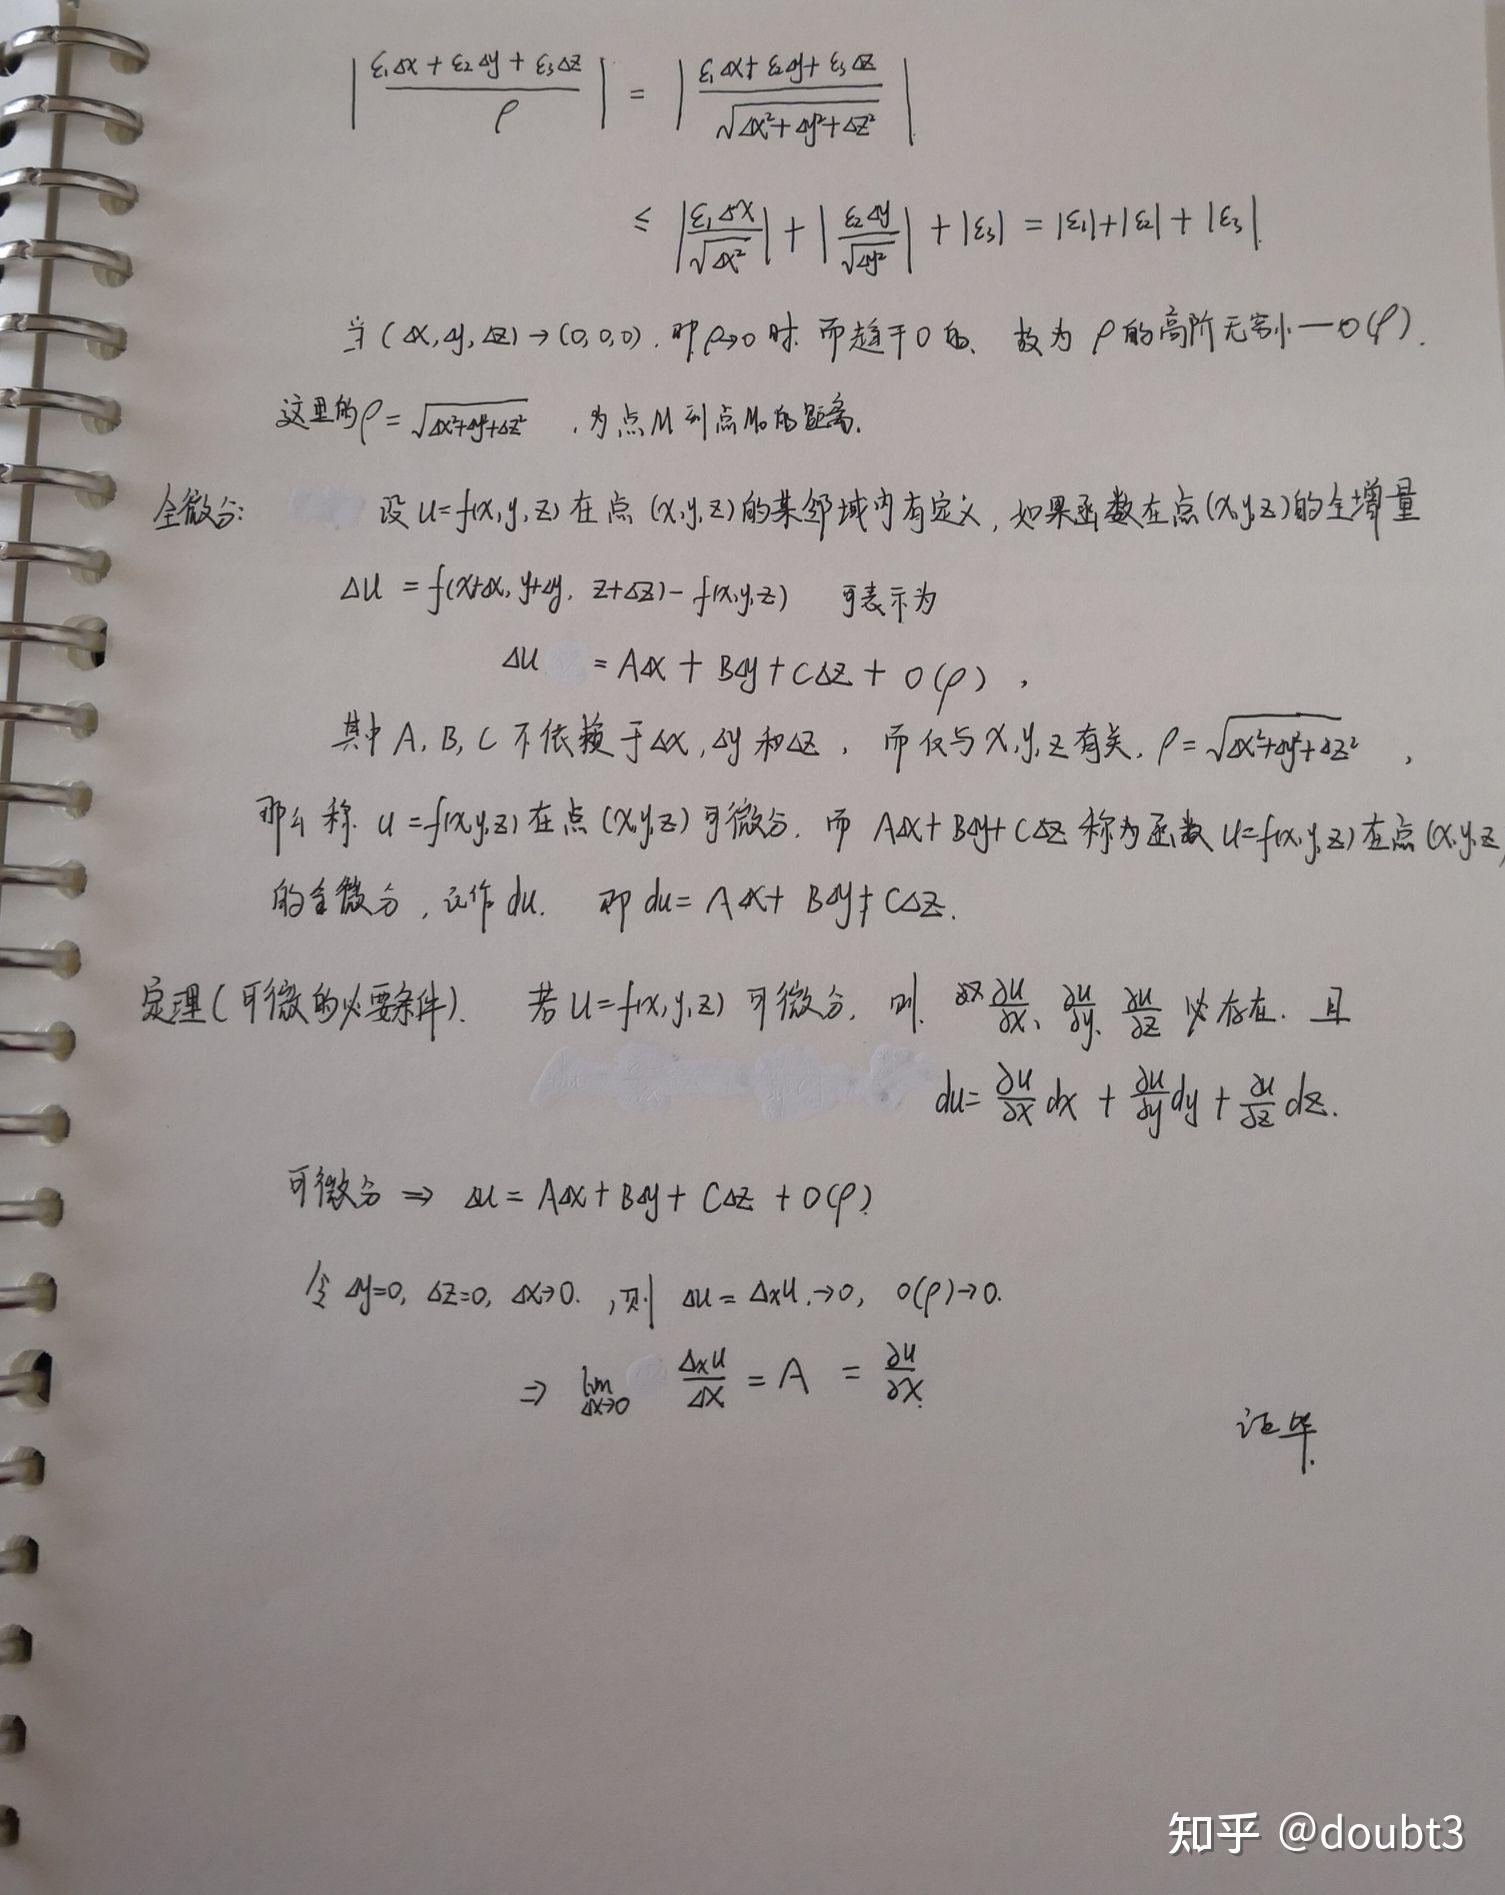 |(ε₁Δx + ε₂Δy + ε₃Δz)/ρ| = |(ε₁Δx + ε₂Δy + ε₃Δz)/√(Δx²+Δy²+Δz²)|
≤ |ε₁Δx/√Δx²| + |ε₂Δy/√Δy²| + |ε₃| = |ε₁|+|ε₂|+|ε₃|.
当(Δx,Δy,Δz)→(0,0,0),即ρ→0时.而趋于0的、故为ρ的高阶无穷小—o(ρ).
这里的ρ=√(Δx²+Δy²+Δz²),为点M到点M₀的距离.
全微分: 设u=f(x,y,z)在点(x,y,z)的某邻域内有定义,如果函数在点(x,y,z)的全增量
Δu = f(x+Δx, y+Δy, z+Δz) - f(x,y,z) 可表示为
Δu = AΔx + BΔy + CΔz + o(ρ),
其中A,B,C不依赖于Δx,Δy和Δz,而仅与x,y,z有关,ρ=√(Δx²+Δy²+Δz²),
那么称u=f(x,y,z)在点(x,y,z)可微分.而AΔx+BΔy+CΔz称为函数u=f(x,y,z)在点(x,y,z)
的全微分,记作du. 即du= AΔx+ BΔy+ CΔz.
定理(可微的必要条件). 若u=f(x,y,z)可微分,则 ∂u/∂x、∂u/∂y、∂u/∂z必存在.且
du= ∂u/∂x dx + ∂u/∂y dy + ∂u/∂z dz.
可微分 ⇒ Δu = AΔx + BΔy + CΔz + o(ρ)
令Δy=0, Δz=0, Δx→0.,则 Δu = Δxu.→0, o(ρ)→0.
⇒ lim Δx→0 Δxu/Δx = A = ∂u/∂x.
证毕.
知乎 @doubt3